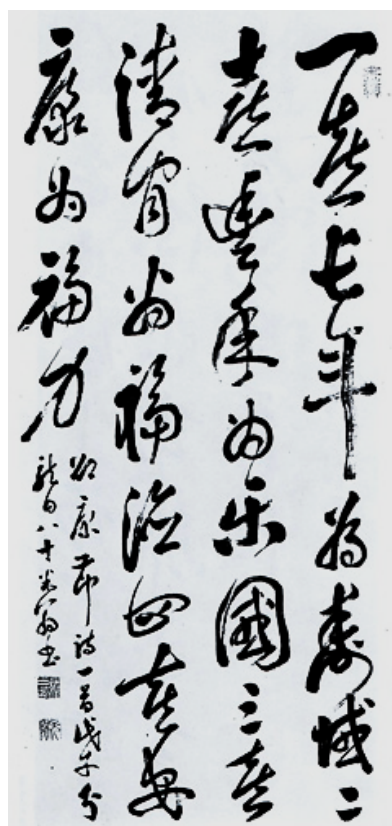 一喜長年為壽域二
喜豐年為樂國三喜
清閒為福德四喜安
康為福力
邵康節詩一首戊午分
龍日八十翁書